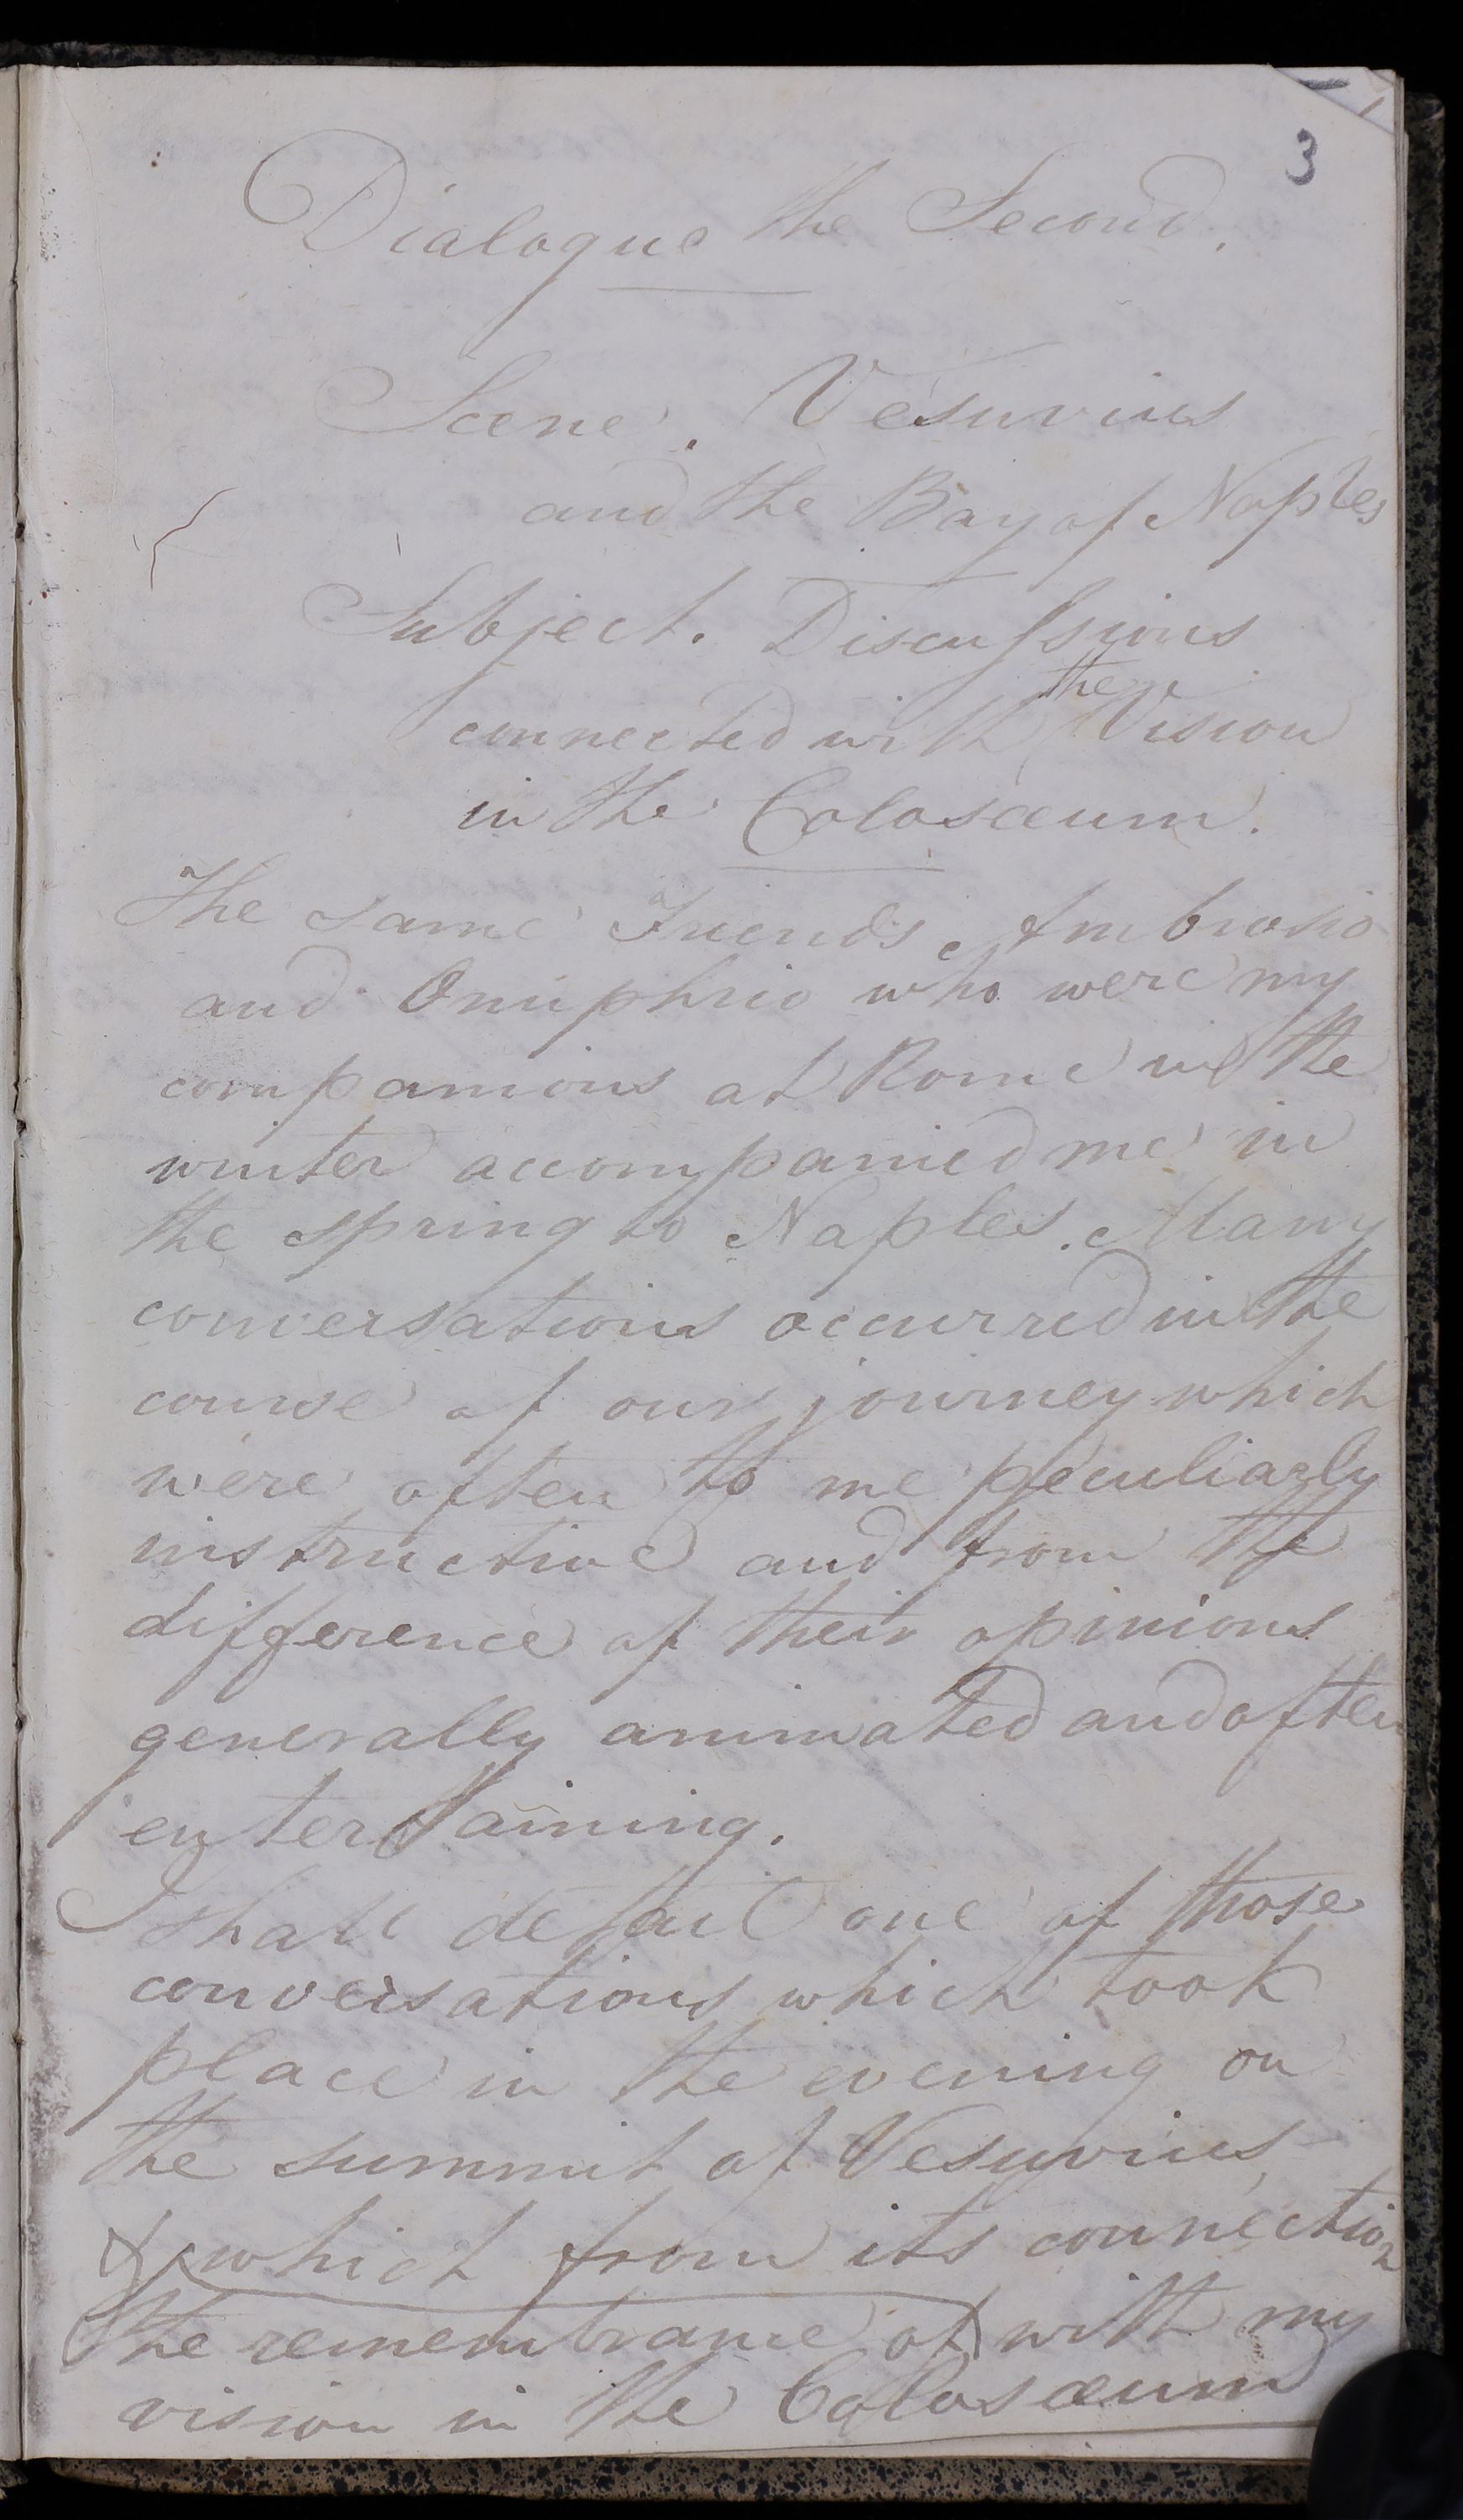 3
Dialogue the Second.
Scene. Vesuvius
and the Bay of Naples
Subject. Discussions
the
connected with Vision
in the Colosæum.
The same Friends, Ambrosio
and Onuphrio who were my
companions at Rome in the
winter accompanied me in
the spring to Naples. Many
conversations occurred in the
course of our journey which
were often to me peculiarly
instructive and from the
difference of their opinions
generally animated and often
entertaining.
I shall detail one of those
conversations which took
place in the evening on
the summit of Vesuvius
& which from its connection
the remembrance of with my
vision in the Colosæum